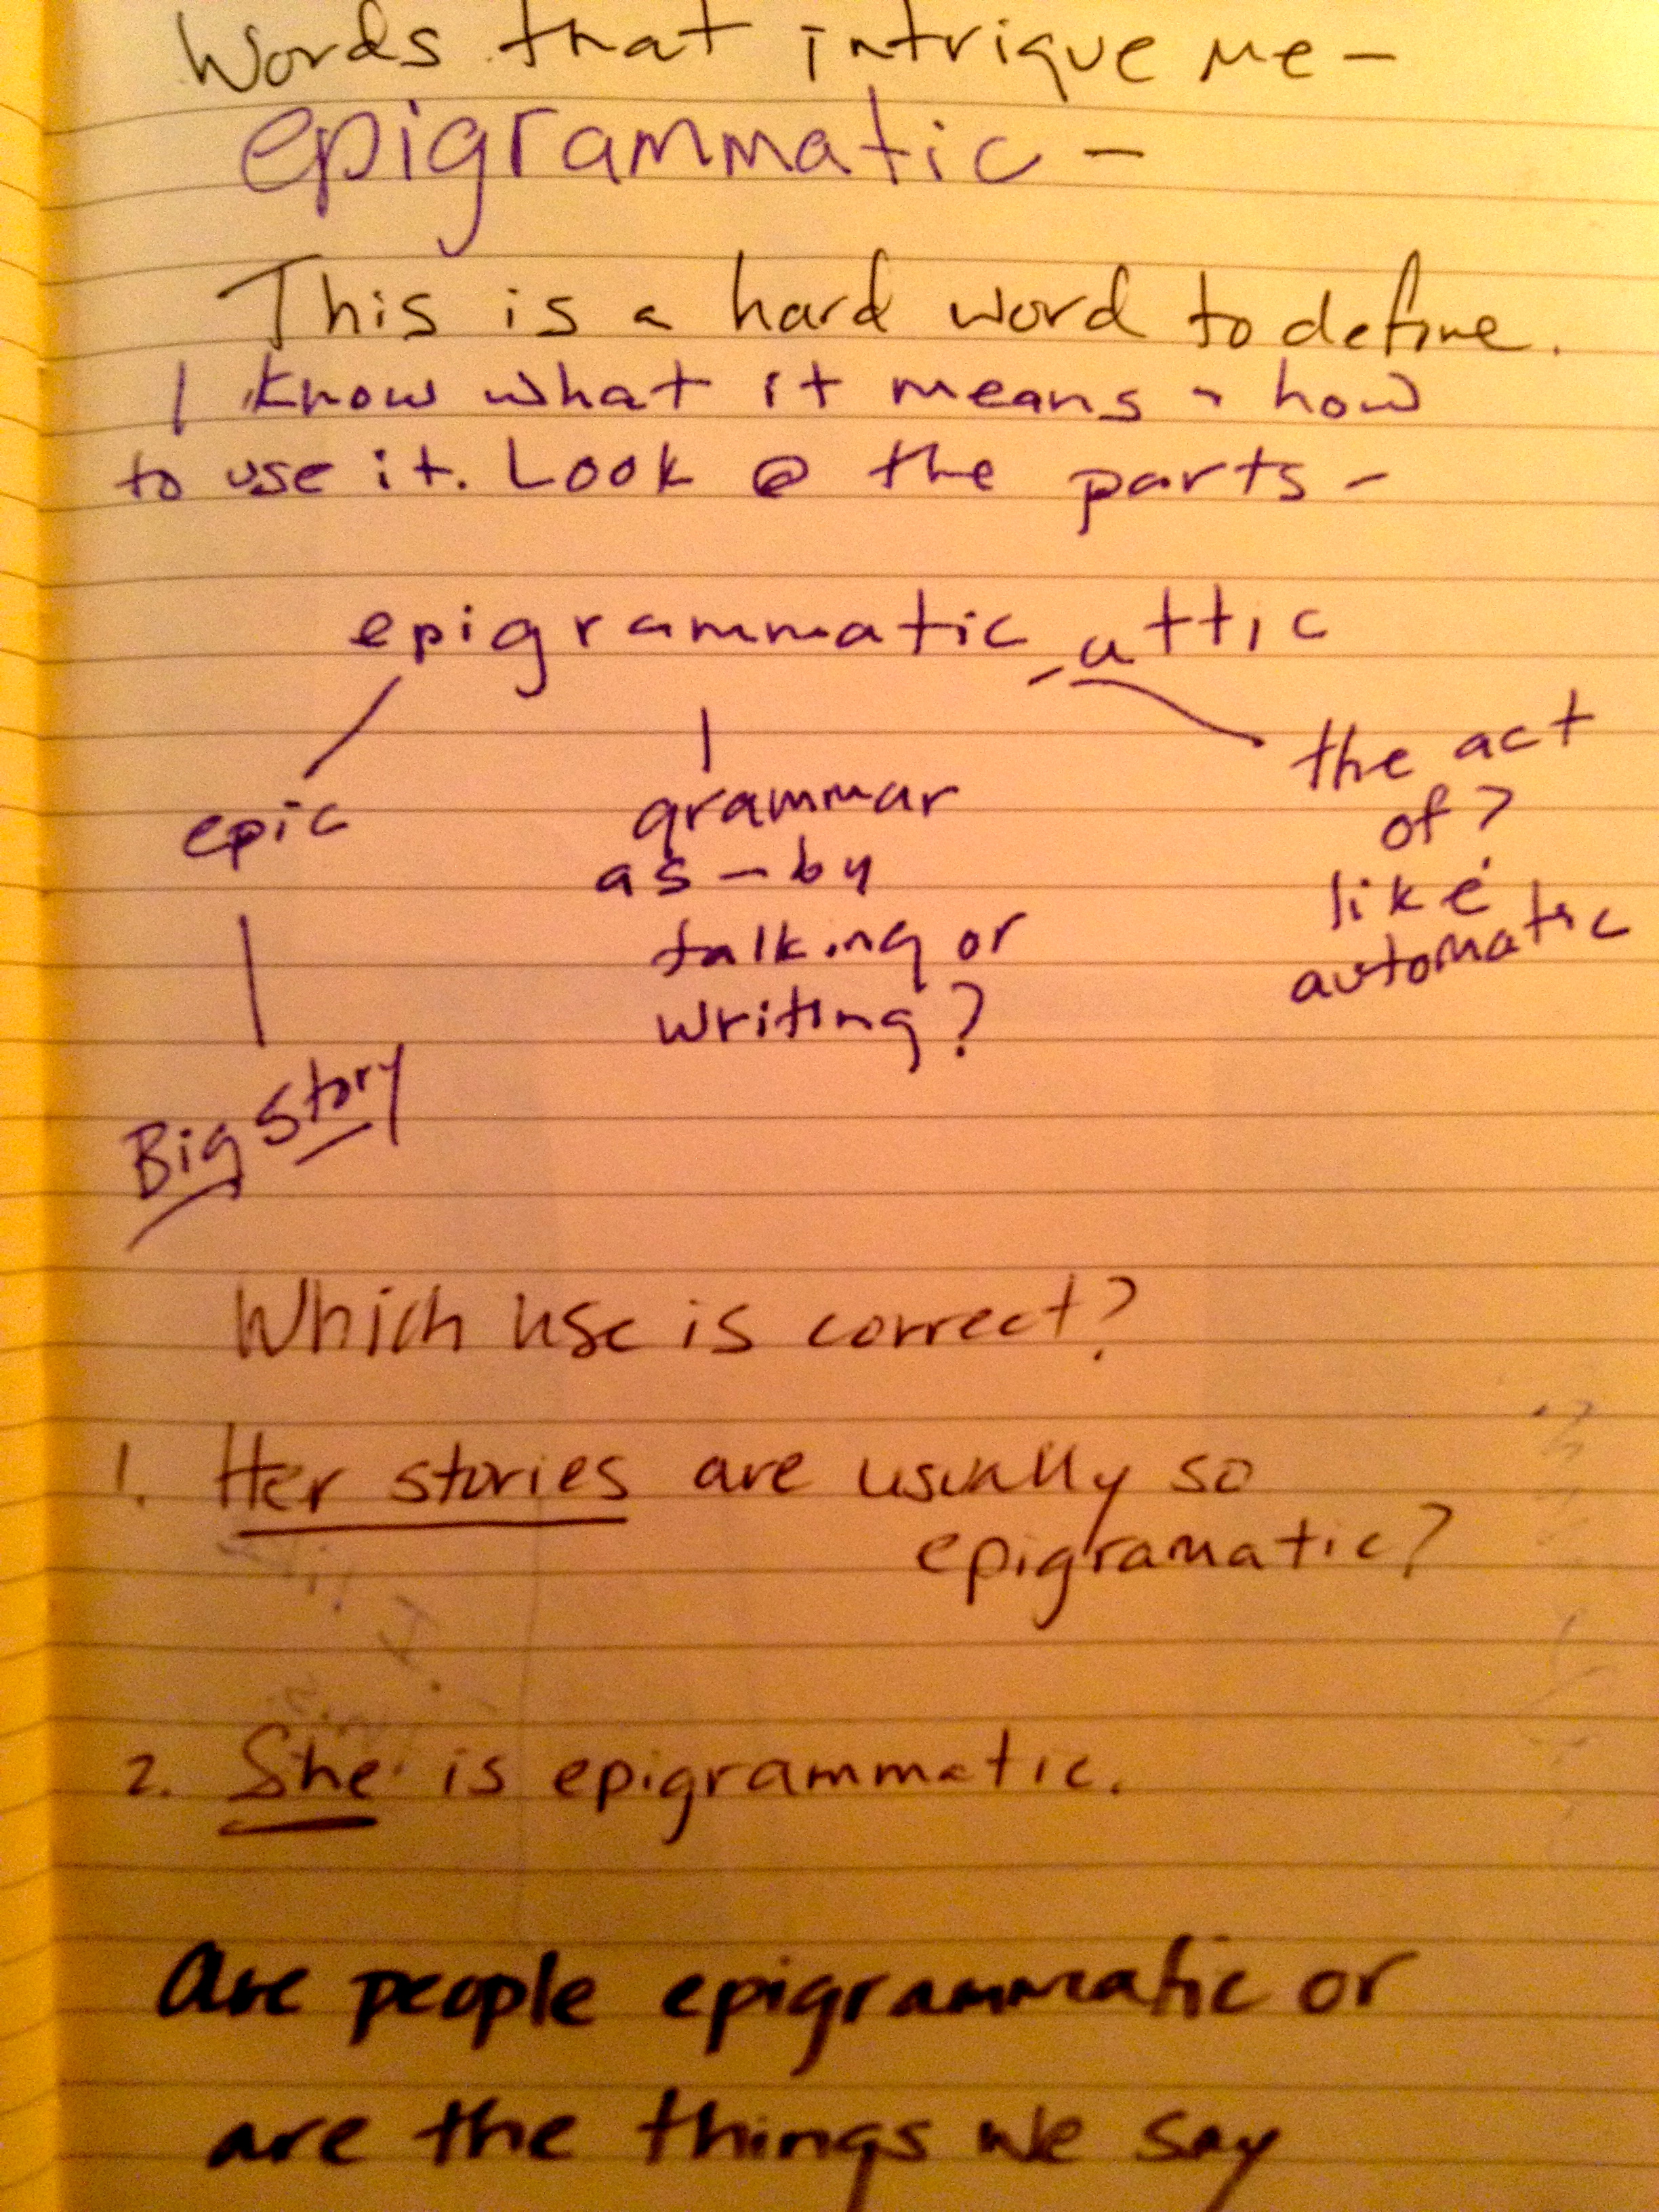 Words that intrigue me -
epigrammatic -
This is a hard word to define.
I know what it means + how
to use it. Look @ the parts -
epigrammatic - attic
epic
grammar
as - by
talking or
writing?
the act
of?
like
automatic
Big Story
Which use is correct?
1. Her stories are usually so
epigramatic?
2. She is epigrammatic.
Are people epigrammatic or
are the things we say